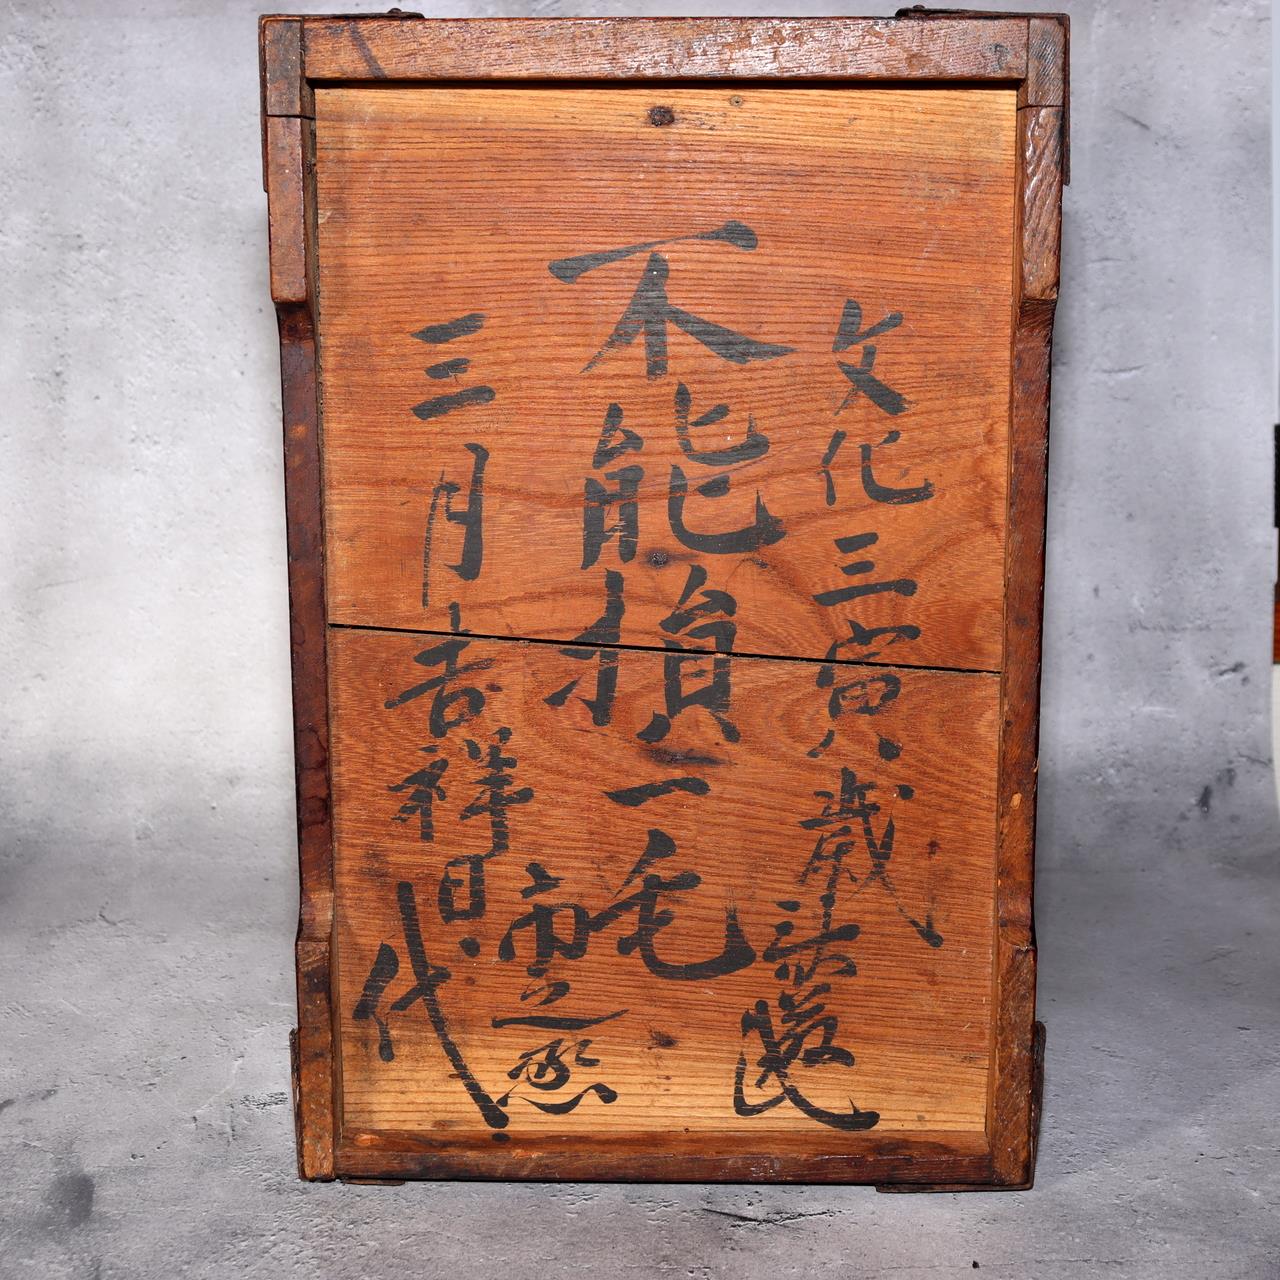 文化三寅歳
不能損一毛
三月吉祥日
代